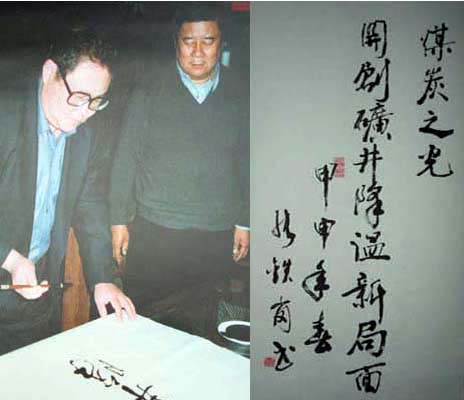 煤炭之光
開創礦井降温新局面
甲申年春
张铁岗书